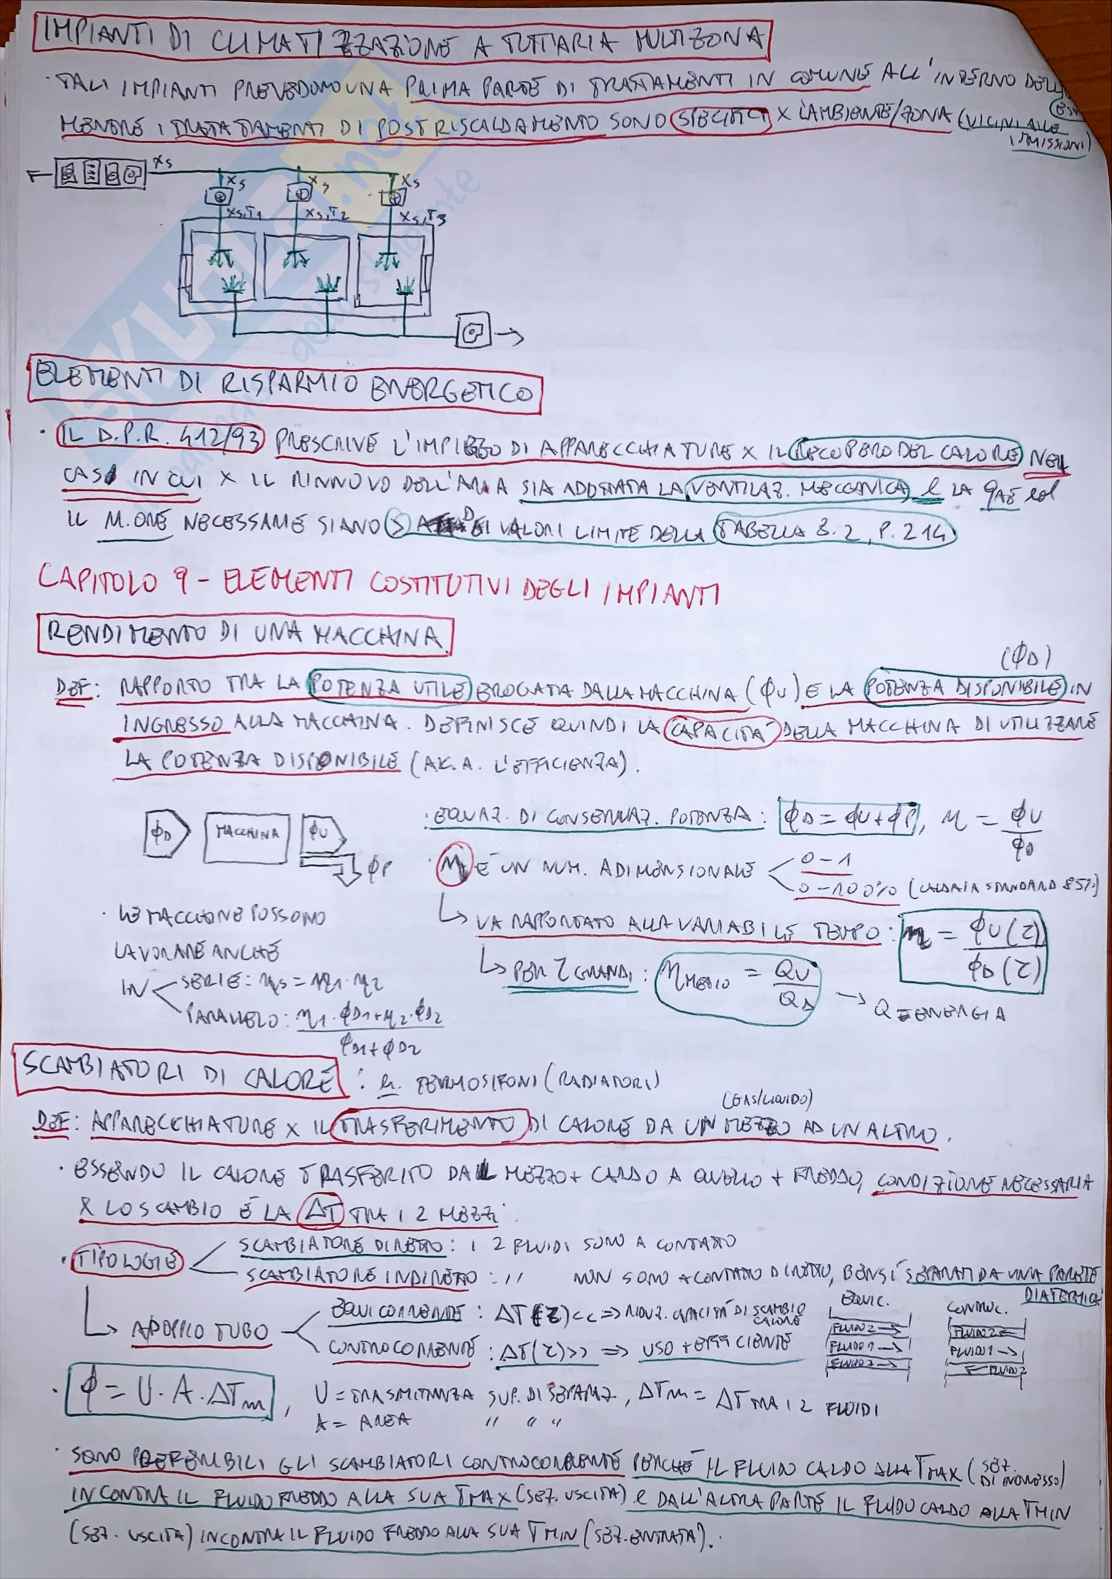 IMPIANTI DI CLIMATIZZAZIONE A TUTTARIA MULTIZONA
· TALI IMPIANTI PREVEDONO UNA PRIMA PARTE DI TRATTAMENTI IN COMUNE ALL'INTERNO DELL
MENTRE I TRATTAMENTI DI POST RISCALDAMENTO SONO SPECIFICI X L'AMBIENTE/ZONA (VICINI ALLE
IMMISSIONI)
XS
XS XS XS
XS,T1 XS,T2 XS,T3
ELEMENTI DI RISPARMIO ENERGETICO
· IL D.P.R. 412/93 PRESCRIVE L'IMPIEGO DI APPARECCHIATURE X IL RECUPERO DEL CALORE NEL
CASI IN CUI X IL RINNOVO DELL'ARIA SIA ADOTTATA LA VENTILAZ. MECCANICA E LA qAE ed
IL N.ORE NECESSARIE SIANO > DEI VALORI LIMITE DELLA TABELLA 8.2, P. 214
CAPITOLO 9 - ELEMENTI COSTITUTIVI DEGLI IMPIANTI
RENDIMENTO DI UNA MACCHINA
(ΦD)
DEF: RAPPORTO TRA LA POTENZA UTILE EROGATA DALLA MACCHINA (ΦU) E LA POTENZA DISPONIBILE IN
INGRESSO ALLA MACCHINA. DEFINISCE QUINDI LA CAPACITÀ DELLA MACCHINA DI UTILIZZARE
LA POTENZA DISPONIBILE (A.K.A. L'EFFICIENZA).
ΦD MACCHINA ΦU
ΦP
· EQUAZ. DI CONSERVAZ. POTENZA: ΦD = ΦU + ΦP, η = ΦU/ΦD
· η È UN NUM. ADIMENSIONALE
0-1
0-100% (CALDAIA STANDARD 85%)
VA RAPPORTATO ALLA VARIABILE TEMPO: η = ΦU(τ)/ΦD(τ)
PER τ GRANDI: ηMEDIO = QU/QD → Q = ENERGIA
· LE MACCHINE POSSONO
LAVORARE ANCHE
IN
SERIE: ηS = η1·η2
PARALLELO: η1·ΦD1+η2·ΦD2/ΦD1+ΦD2
SCAMBIATORI DI CALORE: TERMOSIFONI (RADIATORI)
(GAS/LIQUIDO)
DEF: APPARECCHIATURE X IL TRASFERIMENTO DI CALORE DA UN MEZZO AD UN ALTRO.
· ESSENDO IL CALORE TRASFERITO DAL MEZZO + CALDO A QUELLO + FREDDO, CONDIZIONE NECESSARIA
X LO SCAMBIO È LA ΔT TRA I 2 MEZZI.
· TIPOLOGIE
SCAMBIATORE DIRETTO: I 2 FLUIDI SONO A CONTATTO
SCAMBIATORE INDIRETTO: // NON SONO A CONTATTO DIRETTO, BENSÌ SEPARATI DA UNA PARETE
DIATERMICA
A DOPPIO TUBO
EQUICORRENTE: ΔT(τ)<< ⇒ RIDUZ. CAPACITÀ DI SCAMBIO
CALORE
CONTROCORRENTE: ΔT(τ)>> ⇒ USO + EFFICIENTE
EQUIC.
FLUIDO 2 →
FLUIDO 1 →
FLUIDO 2 →
CONTROC.
FLUIDO 2 ←
FLUIDO 1 →
← FLUIDO 2
· Φ = U·A·ΔTm, U = TRASMITTANZA SUP. DI SEPARAZ., ΔTm = ΔT TRA I 2 FLUIDI
A = AREA // // //
· SONO PREFERIBILI GLI SCAMBIATORI CONTROCORRENTE PERCHÉ IL FLUIDO CALDO ALLA TMAX (SEZ.
DI INGRESSO)
INCONTRA IL FLUIDO FREDDO ALLA SUA TMAX (SEZ. USCITA) E DALL'ALTRA PARTE IL FLUIDO CALDO ALLA TMIN
(SEZ. USCITA) INCONTRA IL FLUIDO FREDDO ALLA SUA TMIN (SEZ. ENTRATA).